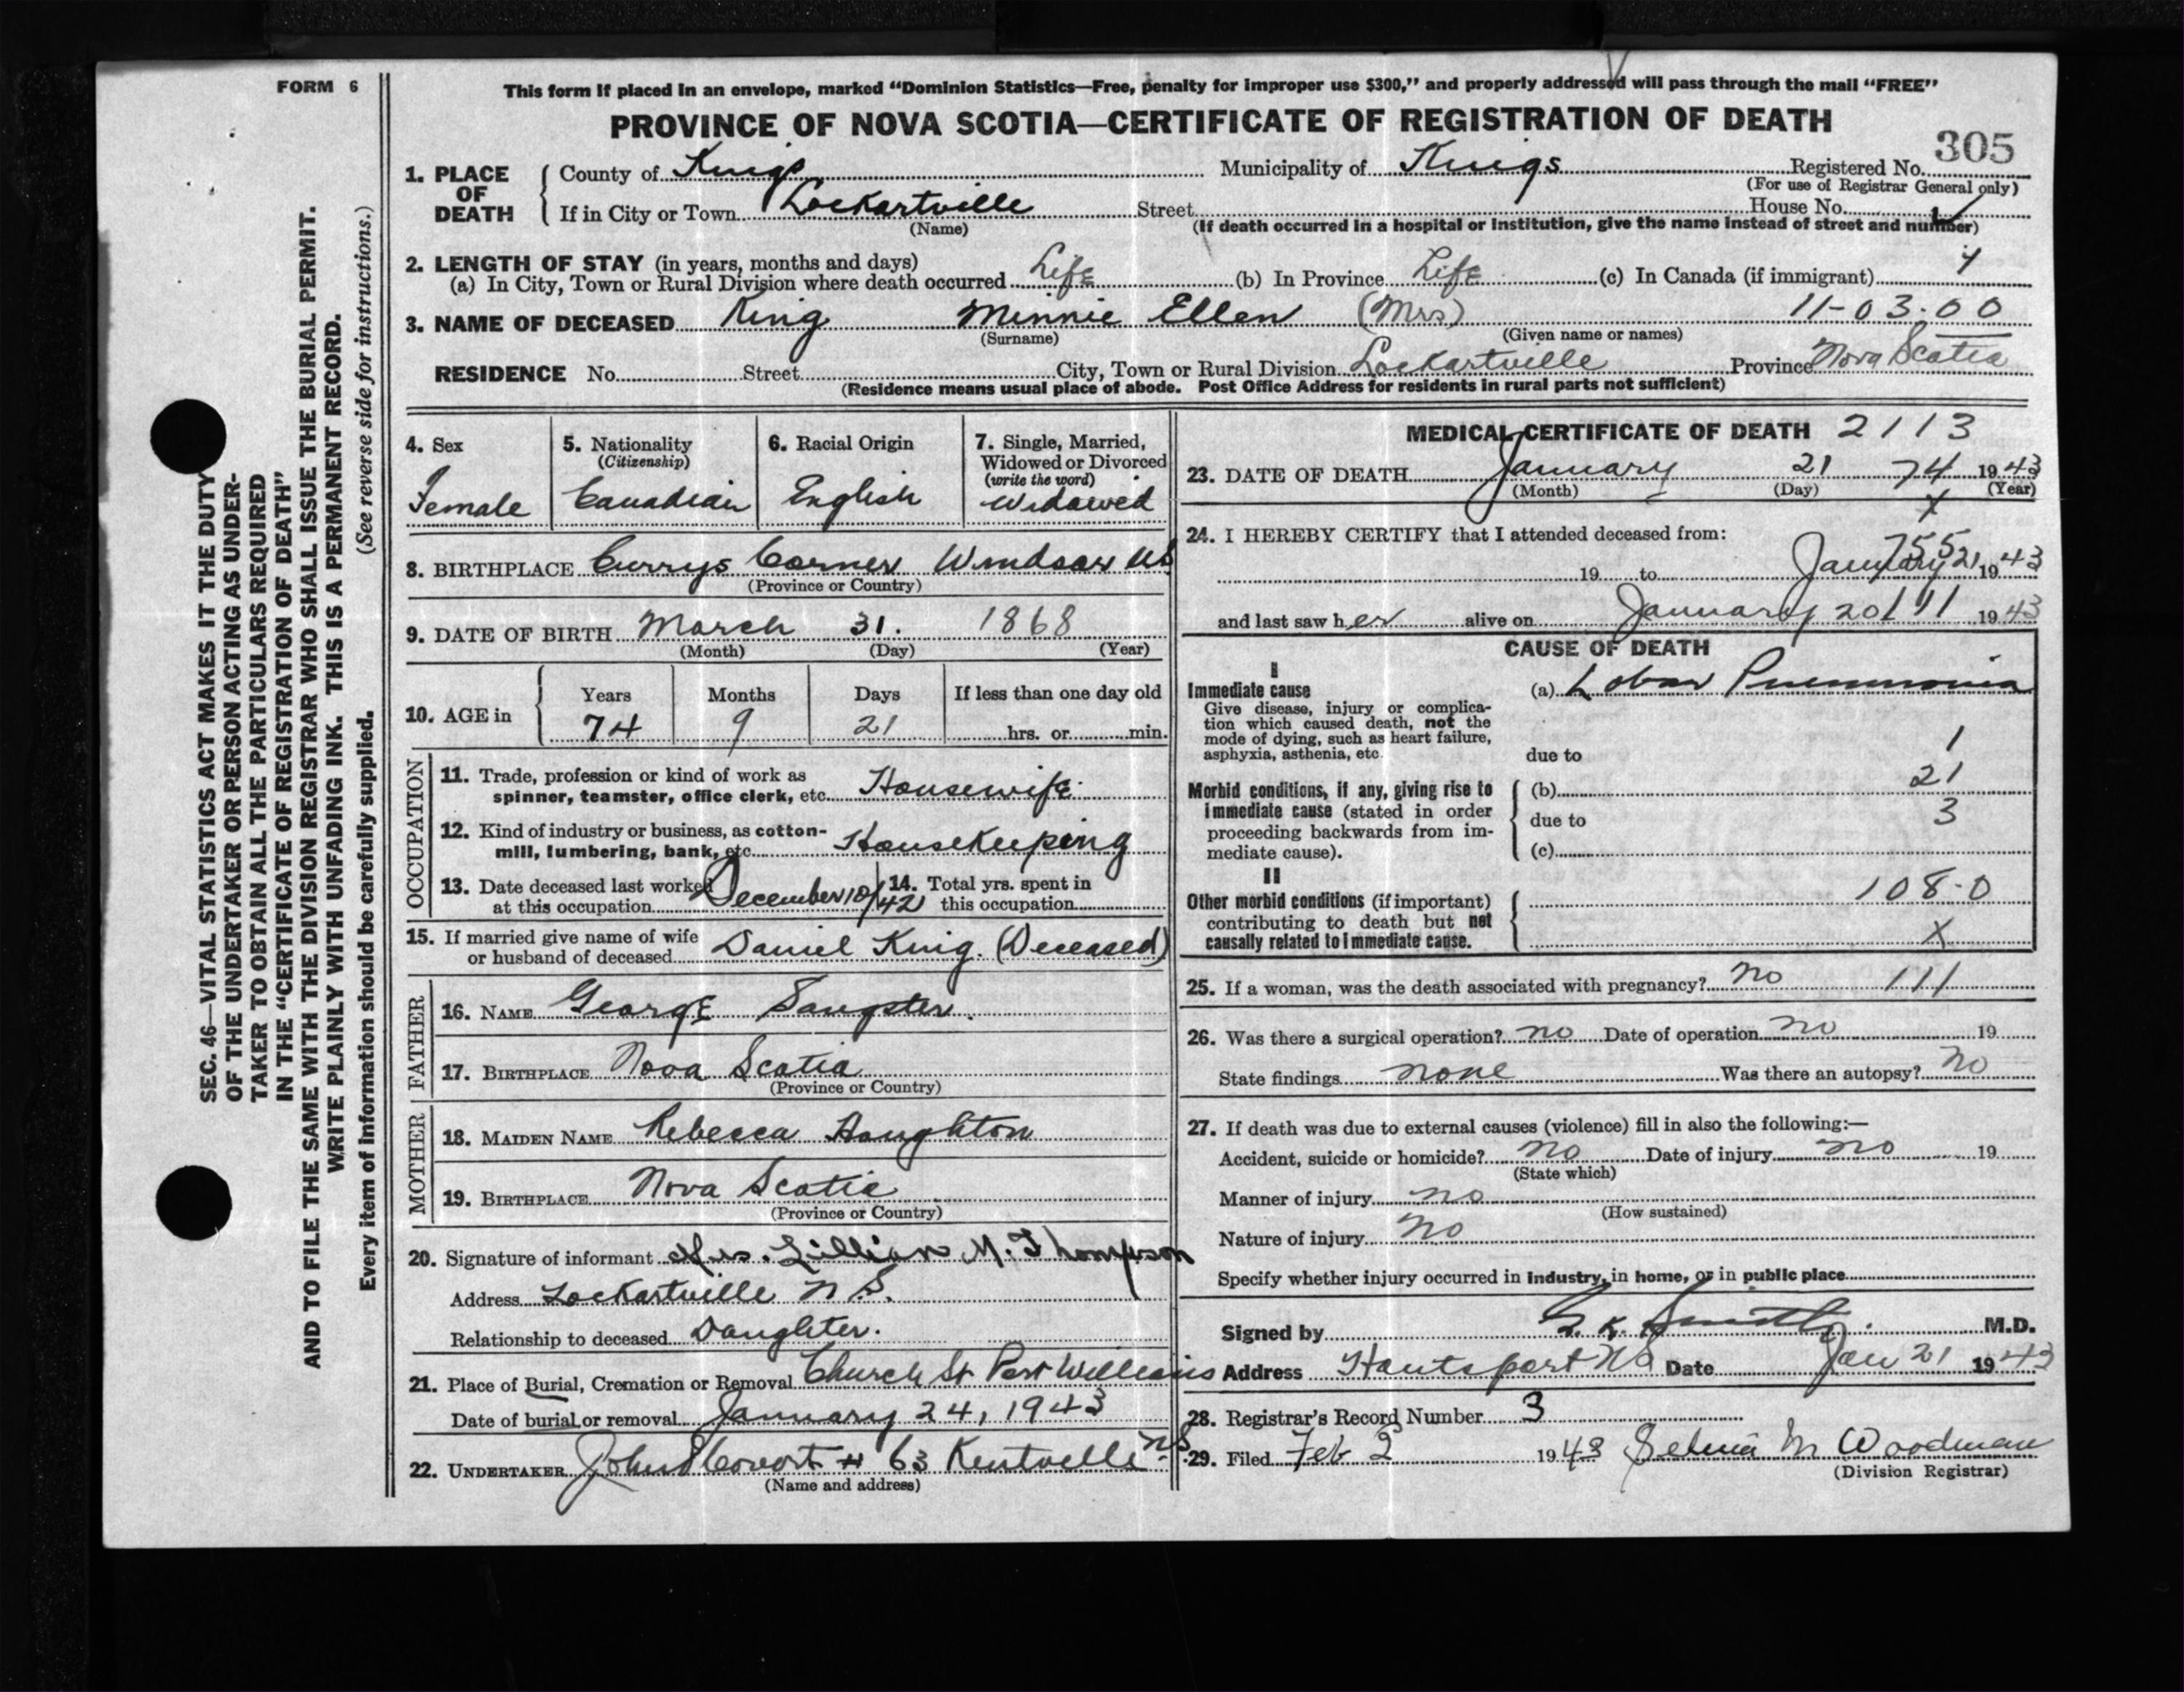 FORM 6
This form if placed in an envelope, marked “Dominion Statistics—Free, penalty for improper use $300,” and properly addressed will pass through the mail “FREE”
PROVINCE OF NOVA SCOTIA—CERTIFICATE OF REGISTRATION OF DEATH
305
1. PLACE OF DEATH County of Kings Municipality of Kings Registered No.
(For use of Registrar General only)
If in City or Town Lockartville Street House No.
(Name) (If death occurred in a hospital or institution, give the name instead of street and number)
2. LENGTH OF STAY (in years, months and days)
(a) In City, Town or Rural Division where death occurred Life (b) In Province Life (c) In Canada (if immigrant)
3. NAME OF DECEASED King Minnie Ellen (Mrs) 11-03.00
(Surname) (Given name or names)
RESIDENCE No. Street City, Town or Rural Division Lockartville Province Nova Scotia
(Residence means usual place of abode. Post Office Address for residents in rural parts not sufficient)
SEC. 46—VITAL STATISTICS ACT MAKES IT THE DUTY
OF THE UNDERTAKER OR PERSON ACTING AS UNDER-
TAKER TO OBTAIN ALL THE PARTICULARS REQUIRED
IN THE “CERTIFICATE OF REGISTRATION OF DEATH”
AND TO FILE THE SAME WITH THE DIVISION REGISTRAR WHO SHALL ISSUE THE BURIAL PERMIT.
WRITE PLAINLY WITH UNFADING INK. THIS IS A PERMANENT RECORD.
Every item of information should be carefully supplied. (See reverse side for instructions.)
4. Sex
Female
5. Nationality
(Citizenship)
Canadian
6. Racial Origin
English
7. Single, Married,
Widowed or Divorced
(write the word)
Widowed
8. BIRTHPLACE Currys Corner Windsor NS
(Province or Country)
9. DATE OF BIRTH March 31. 1868
(Month) (Day) (Year)
10. AGE in
Years Months Days If less than one day old
74 9 21 hrs. or min.
OCCUPATION
11. Trade, profession or kind of work as
spinner, teamster, office clerk, etc. Housewife
12. Kind of industry or business, as cotton-
mill, lumbering, bank, etc. Housekeeping
13. Date deceased last worked
at this occupation December 10/42
14. Total yrs. spent in
this occupation
15. If married give name of wife
or husband of deceased Daniel King. (Deceased)
FATHER
16. NAME George Sangster.
17. BIRTHPLACE Nova Scotia
(Province or Country)
MOTHER
18. MAIDEN NAME Rebecca Haughton
19. BIRTHPLACE Nova Scotia
(Province or Country)
20. Signature of informant Mrs. Lillian M. Thompson
Address Lockartville N.S.
Relationship to deceased Daughter.
21. Place of Burial, Cremation or Removal Church St Port Williams
Date of burial or removal January 24, 1943
22. UNDERTAKER # 63 Kentville NS
(Name and address)
MEDICAL CERTIFICATE OF DEATH 2113
23. DATE OF DEATH January 21 74 1943
(Month) (Day) (Year)
X
24. I HEREBY CERTIFY that I attended deceased from:
755
19 to January 21 1943
and last saw her alive on January 20 111 1943
CAUSE OF DEATH
I
Immediate cause
Give disease, injury or complica-
tion which caused death, not the
mode of dying, such as heart failure,
asphyxia, asthenia, etc.
(a) Lobar Pneumonia
due to 1
Morbid conditions, if any, giving rise to
immediate cause (stated in order
proceeding backwards from im-
mediate cause).
(b) 21
due to 3
(c)
II
Other morbid conditions (if important)
contributing to death but not
causally related to immediate cause.
108-0
X
25. If a woman, was the death associated with pregnancy? No 111
26. Was there a surgical operation? no Date of operation no 19
State findings none Was there an autopsy? no
27. If death was due to external causes (violence) fill in also the following:—
Accident, suicide or homicide? no Date of injury no 19
(State which)
Manner of injury no
(How sustained)
Nature of injury no
Specify whether injury occurred in industry, in home, or in public place
Signed by G. K. Smith. M.D.
Address Hantsport NS Date Jan 21 1943
28. Registrar's Record Number 3
29. Filed Feb 2 1943 Selma M Woodman
(Division Registrar)